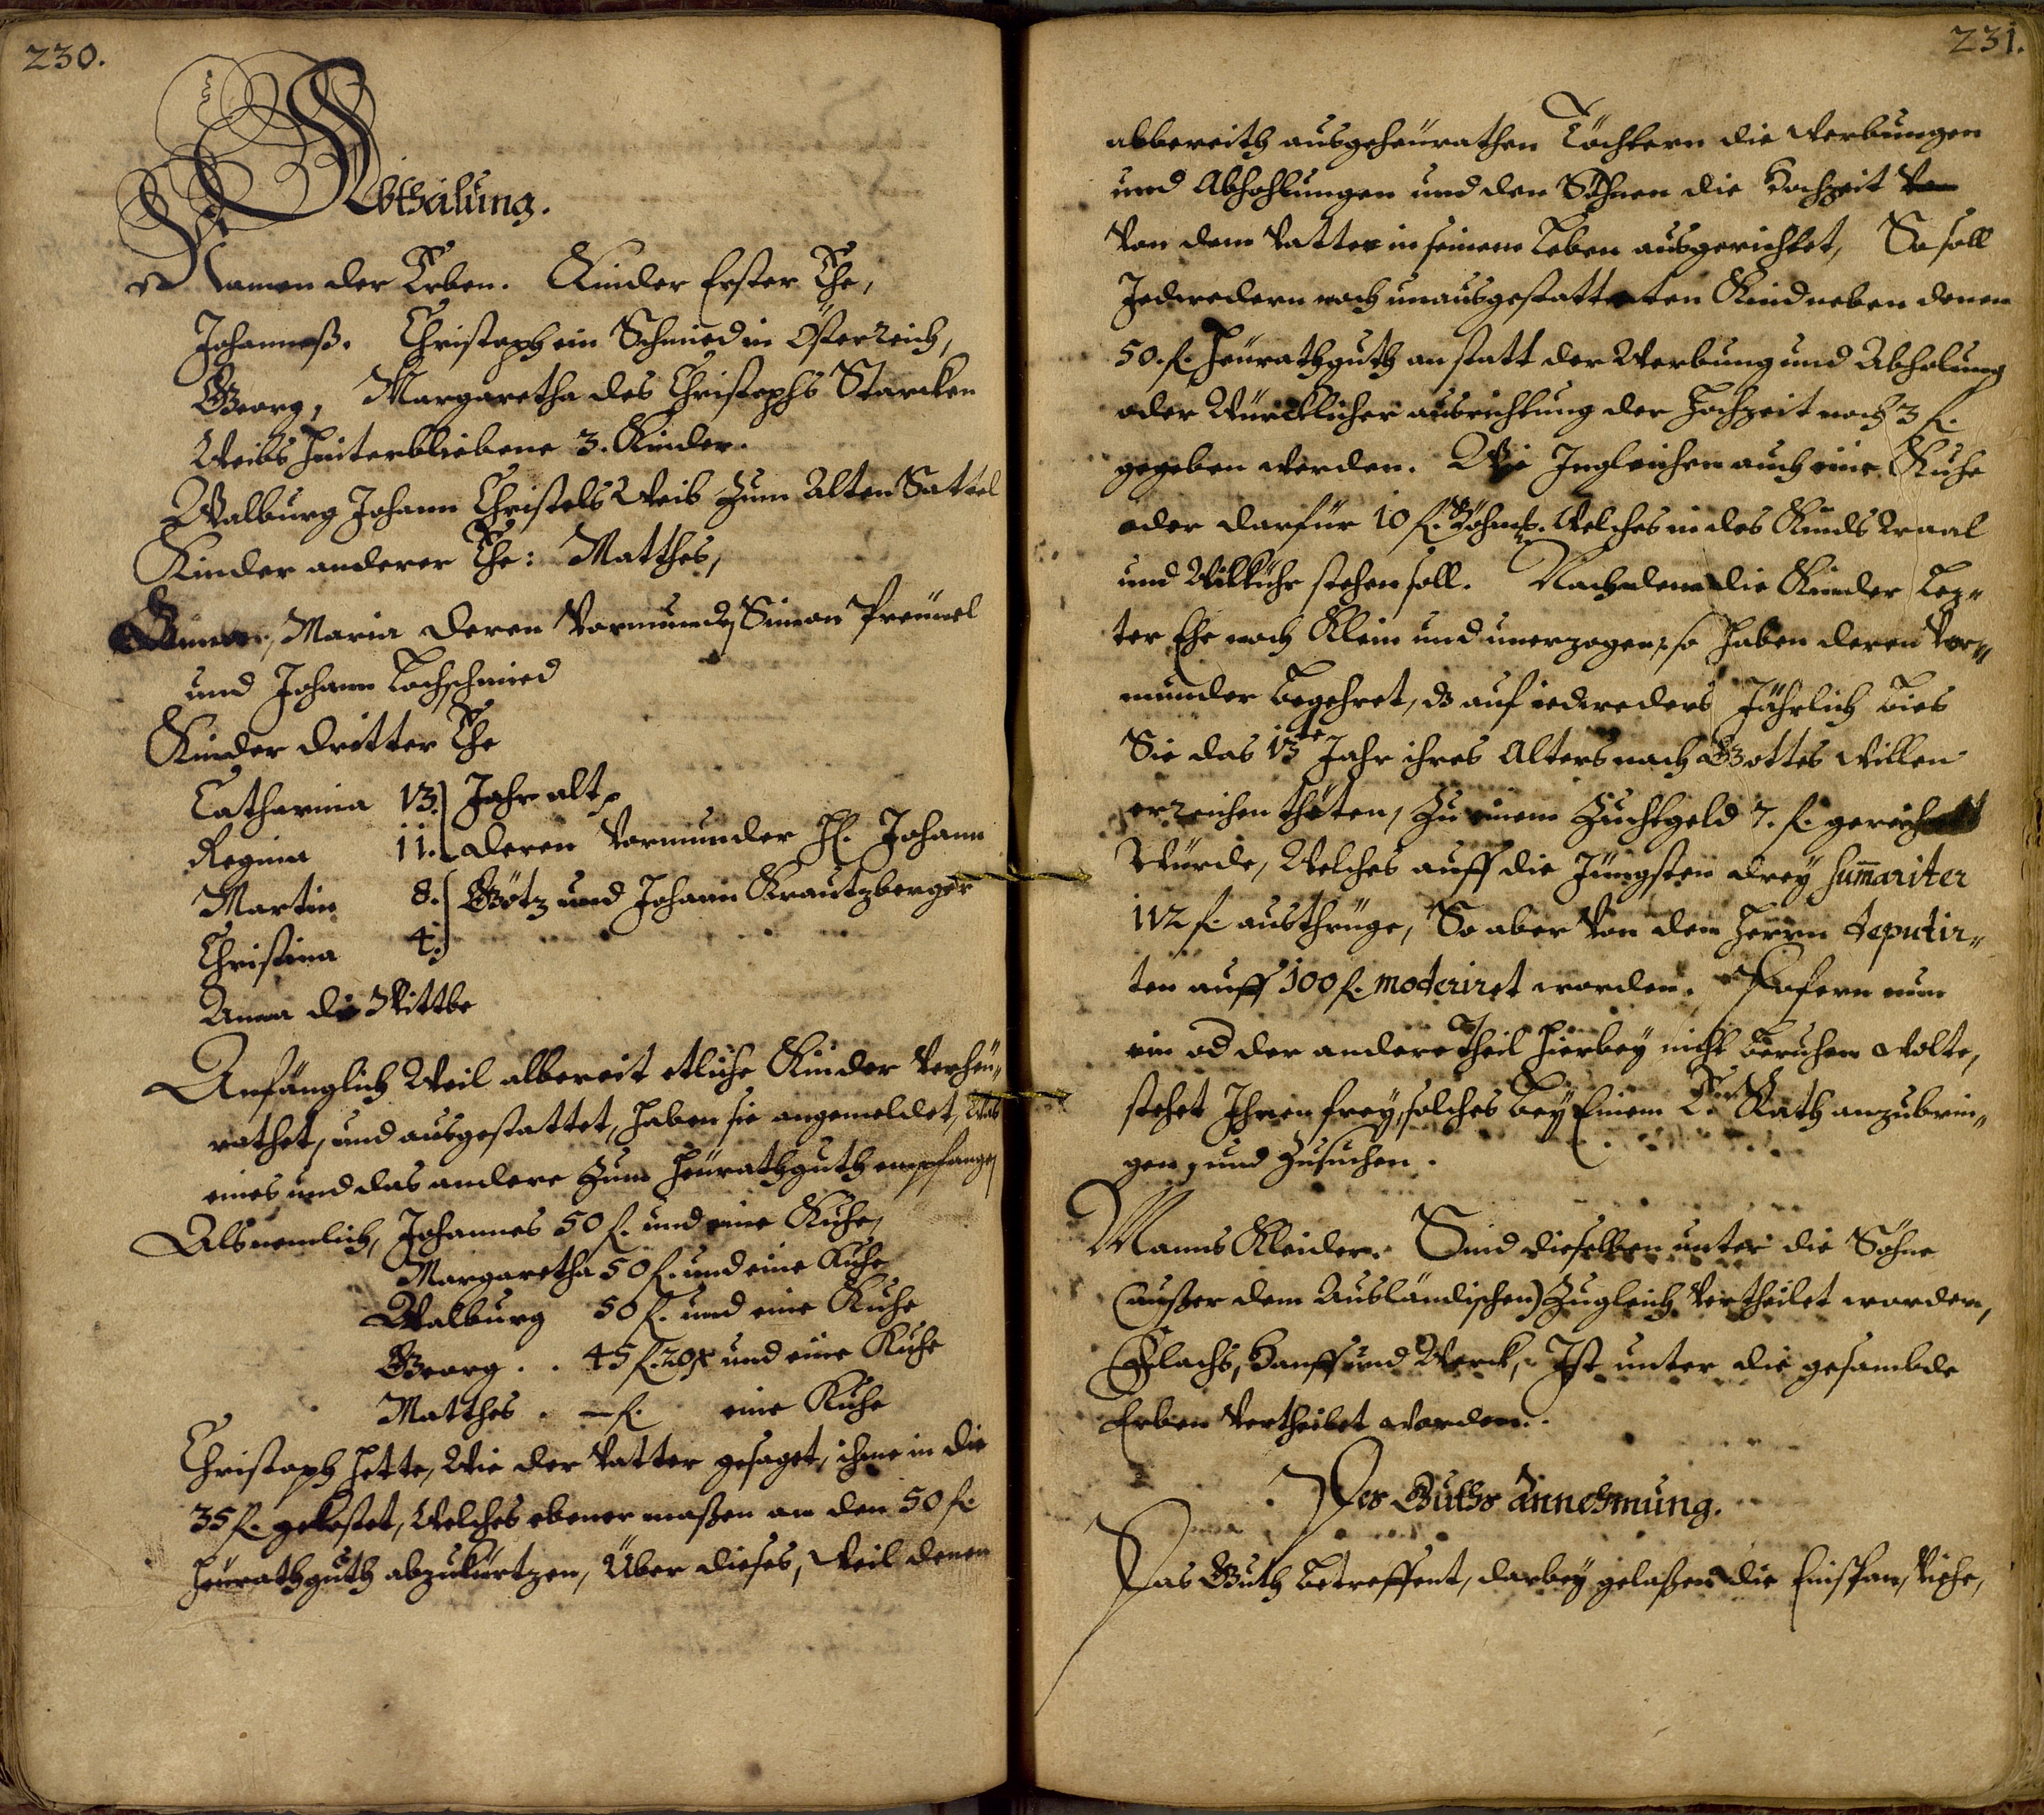 230.
Abtheilung.
Namen der Erben. Kinder Erster Ehe,
Johanneß. Christoph ein Schmied in Österreich,
Georg, Margaretha des Christophs Starcken
Weibs hinterbliebene 3. Kinder.
Walburg Johann Christels Weib zum Alten Sattel
Kinder anderer Ehe: Matthes,
Maria deren Vormunde Simon Preünel
und Johann Lochschmied
Kinder dritter Ehe
Catharina 13. Jahr alt,
Regina 11. deren Vormunder H. Johann
Martin 8. Götz und Johann Krautzberger
Christina 4.
Anna die Wittbe
Anfänglich Weil albereit etliche Kinder Verheü„
rathet, und ausgestattet, haben sie angemeldet, Was
eines und das andere zum Heürathguth empfangen
Als nemlich, Johannes 50 f. und eine Kuhe,
Margaretha 50 f. und eine Kuhe
Walburg 50 f. und eine Kuhe
Georg . . 45 f. 20 x und eine Kuhe
Matthes . — f. eine Kuhe
Christoph hette, Wie der Vatter gesaget, ihme in die
35 f. gekostet, Welches ebener maßen an den 50 f.
Heürathguth abzukürtzen, Über dieses, Weil denen
231.
albereith ausgeheürathen Töchtern die Werbungen
und Abhohlungen und den Söhnen die Hochzeit
Von dem Vatter in seinem Leben ausgerichtet, So soll
Jedwedern noch unausgestatteten Kind neben denen
50. f. Heürathguth anstatt der Werbung und Abholung
oder Würcklicher ausrichtung der Hochzeit noch 3 f.
gegeben werden. Wie Ingleichen auch eine Kuhe
oder darfür 10 f. Böhmisch. Welches in des Kinds Waal
und Wilkühr stehen soll. Nachdeme die Kinder Lez„
ter Ehe noch Klein und unerzogen, so haben deren Vor„
munder begehret, dz auf iedweders Jährlich bies
Sie das 13te Jahr ihres Alters nach Gottes Willen
erreichen thäten, zu einem Zuchtgeld 7. f. gereicht
Würde, Welches auff die Jüngsten drey summariter
112 f. austhrüge, So aber Von dem Herrn deputir„
ten auff 100 f. moderiret worden. Dafern nun
ein od der andere Theil hierbey nicht beruhen wolte,
stehet Ihnen frey, solches bey Einem E. Rath anzubrin„
gen, und Zusuchen.
Manns Kleider. Sind dieselben unter die Söhne
(außer dem Ausländischen) Zugleich Vertheilet worden,
Flachs, Hanff und Werck, Ist unter die gesambde
Erben Vertheilet worden.
Des Guths Annehmung.
Das Guth betreffent, darbey gelaßen die Einspan, Viehe,